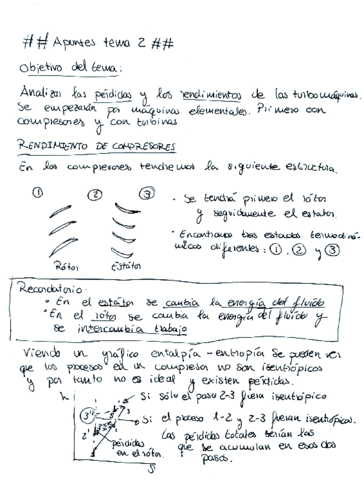 ## Apuntes tema 2 ##
Objetivo del tema:
Analizar las pérdidas y los rendimientos de las turbomáquinas.
Se empezarán por máquinas elementales. Primero con
compresores y con turbinas
RENDIMIENTO DE COMPRESORES
En los compresores tendremos la siguiente estructura.
1 2 3
Rótor Estátor
· Se tendrá primero el rótor
y seguidamente el estator.
· Encontramos tres estados termodiná-
micos diferentes: 1, 2 y 3
Recordatorio:
· En el estátor se cambia la energía del fluido
· En el rótor se cambia la energía del fluido y
se intercambia trabajo
Viendo un gráfico entalpía - entropía se pueden ver
que los procesos en un compresor no son isentrópicos
y por tanto no es ideal y existen pérdidas.
h
Si sólo el paso 2-3 fuera isentrópico
3'
Si el proceso 1-2 y 2-3 fueran isentrópicos.
2'
Las pérdidas totales serían las
que se acumulan en esos dos
pasos.
pérdidas
en el rótor.
S